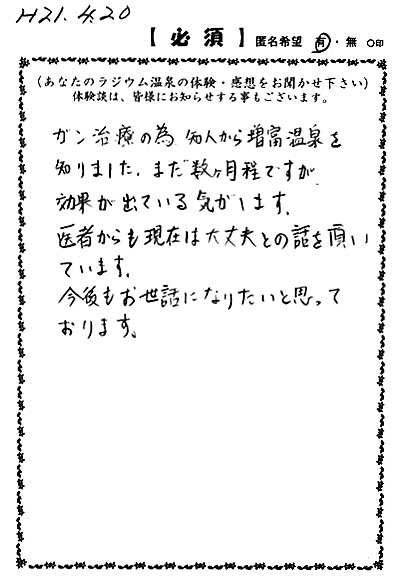 H21.4.20
【必須】 匿名希望 有・無 ○印
(あなたのラジウム温泉の体験・感想をお聞かせ下さい)
体験談は、皆様にお知らせする事もございます。
ガン治療の為 知人から増富温泉を
知りました。まだ数ヶ月程ですが
効果が出ている気がします。
医者からも現在は大丈夫との話を頂い
ています。
今後もお世話になりたいと思って
おります。